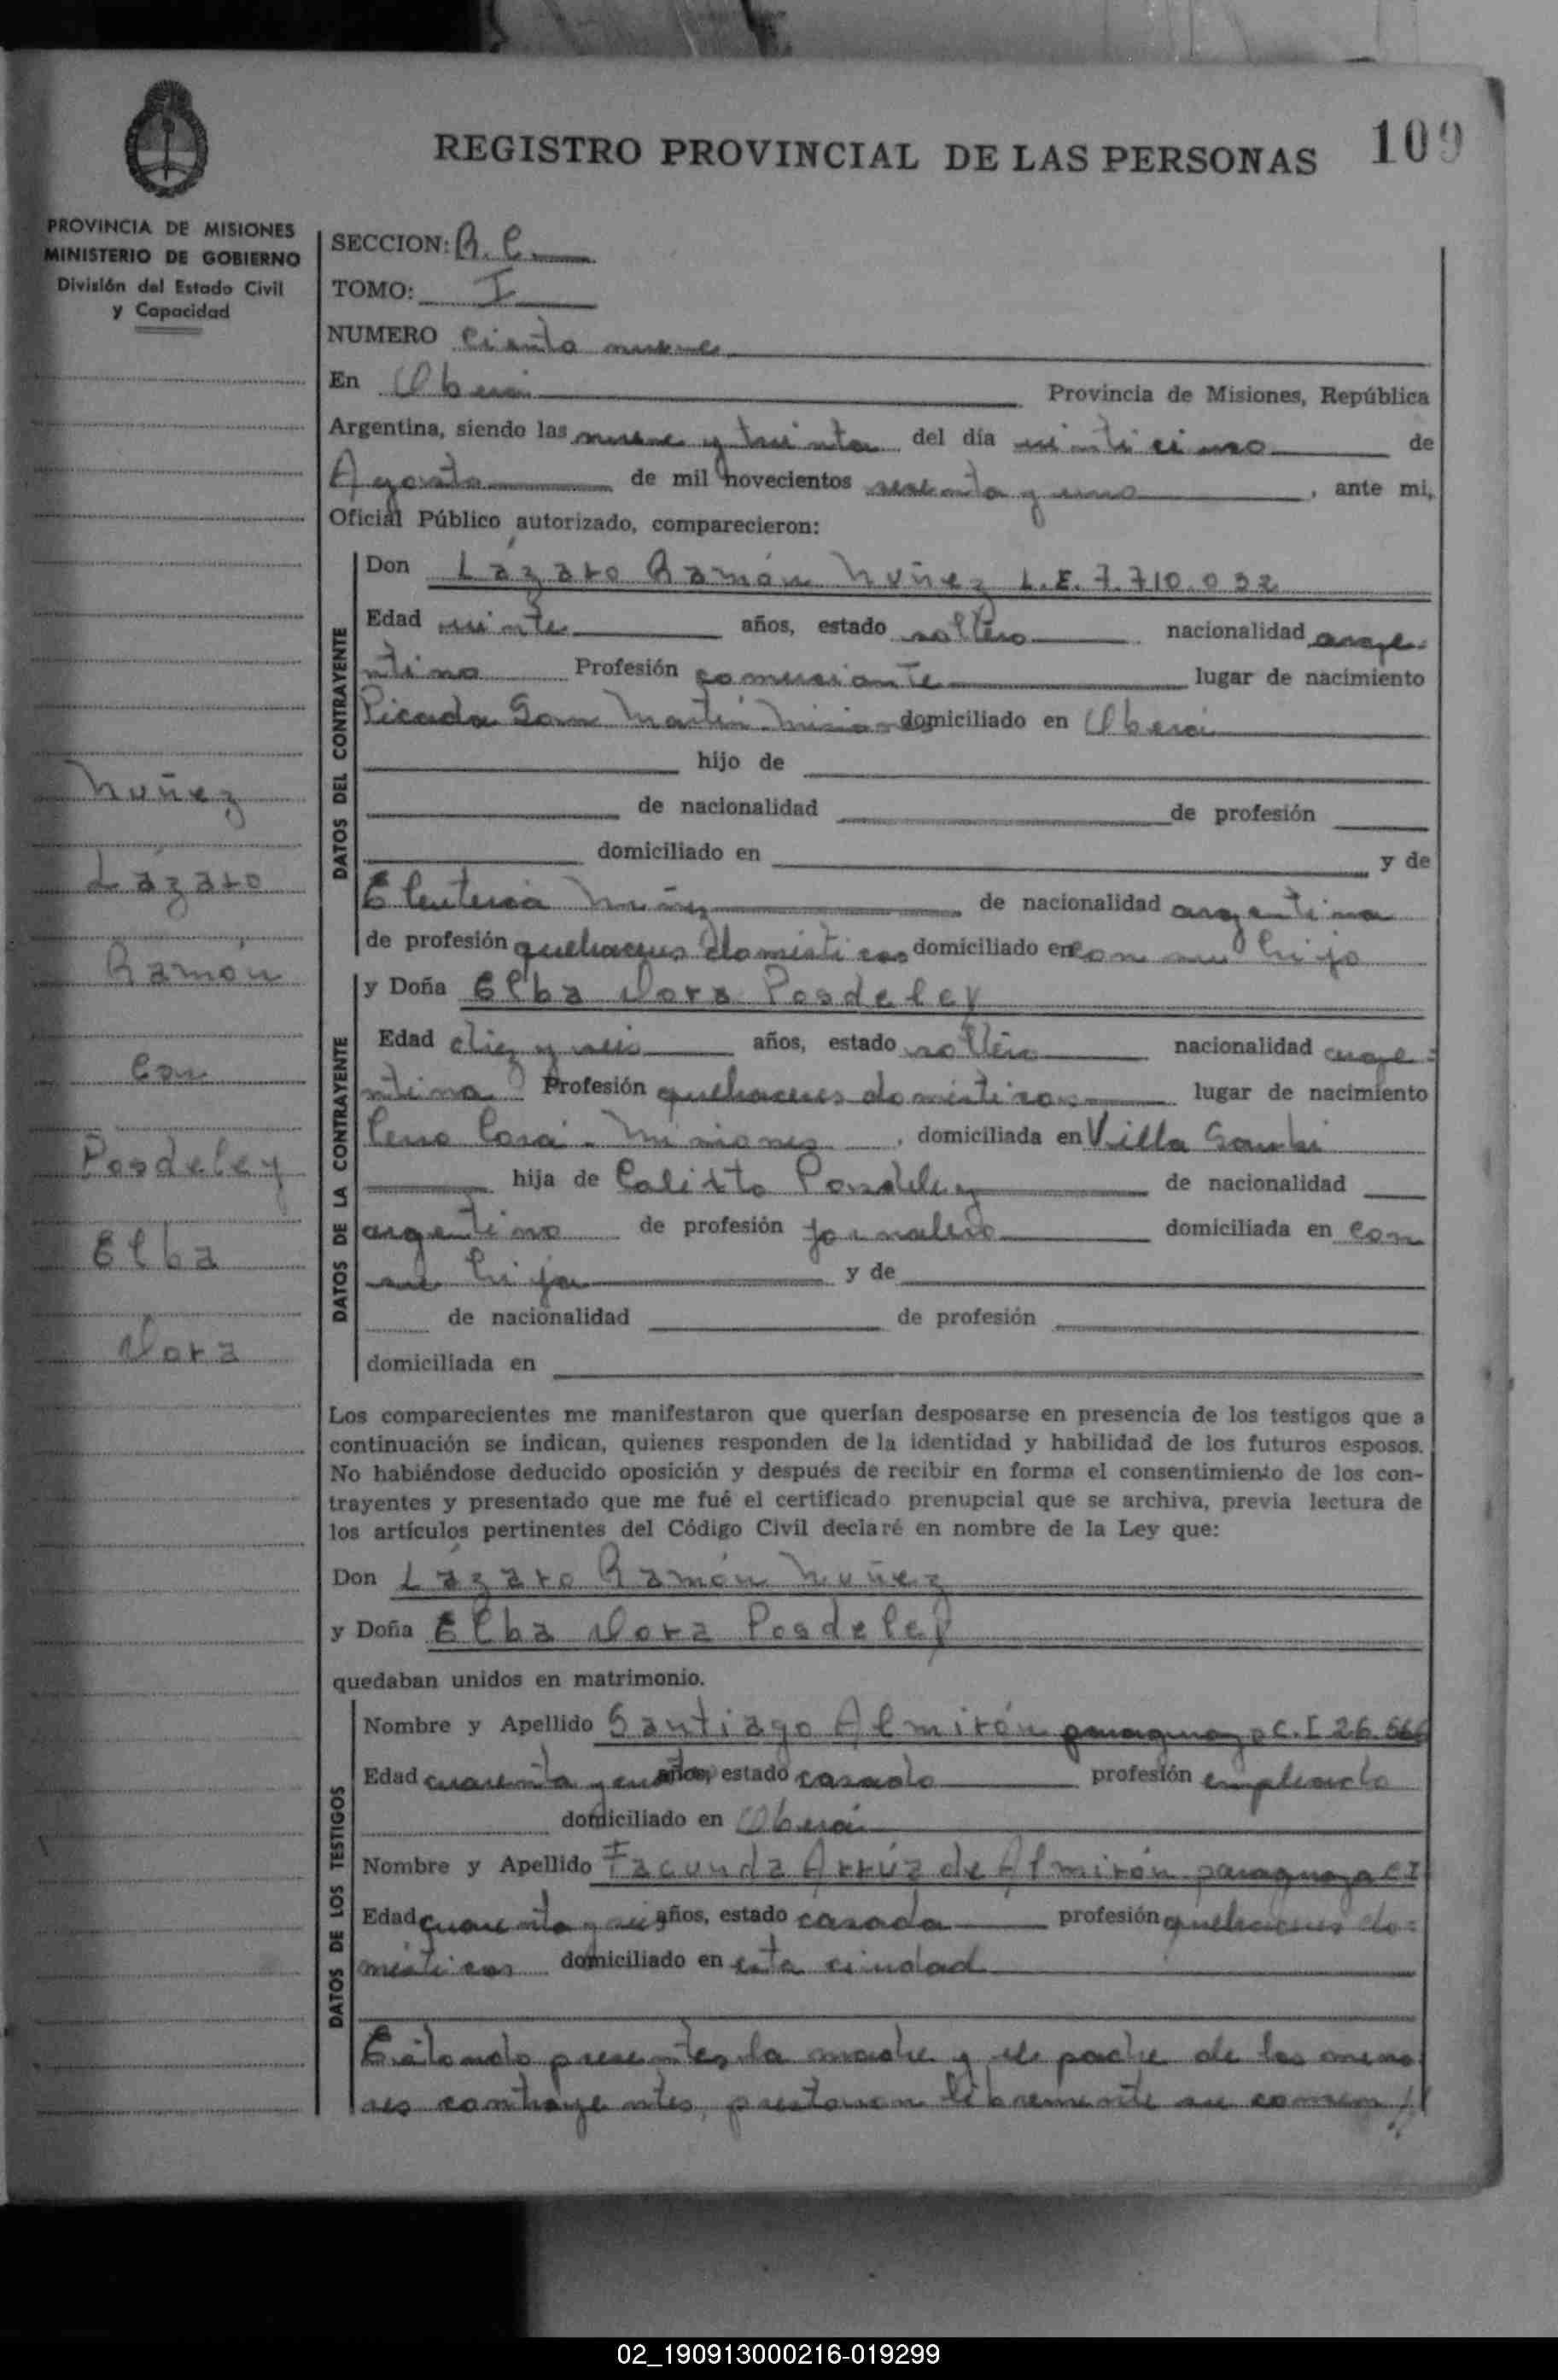 REGISTRO PROVINCIAL DE LAS PERSONAS
109
PROVINCIA DE MISIONES
MINISTERIO DE GOBIERNO
División del Estado Civil
y Capacidad
Nuñez
Lázaro
Ramón
Con
Posdeley
Elba
Dora
SECCION: R. C.
TOMO: I
NUMERO Ciento nueve
En Oberá Provincia de Misiones, República
Argentina, siendo las nueve y treinta del día veinticinco de
Agosto de mil novecientos sesenta y uno, ante mi,
Oficial Público autorizado, comparecieron:
DATOS DEL CONTRAYENTE
Don Lázaro Ramón Nuñez L.E. 7.710.032
Edad veinte años, estado soltero nacionalidad arge-
ntino Profesión comerciante lugar de nacimiento
Picada San Martín Misiones domiciliado en Oberá
hijo de
de nacionalidad de profesión
domiciliado en y de
Eleuteria Nuñez de nacionalidad argentina
de profesión quehaceres domésticos domiciliado en con su hijo
DATOS DE LA CONTRAYENTE
y Doña Elba Dora Posdeley
Edad diez y seis años, estado soltera nacionalidad arge-
ntina Profesión quehaceres domésticos lugar de nacimiento
Cerro Corá - Misiones, domiciliada en Villa
hija de Calixto Posdeley de nacionalidad
argentino de profesión jornalero domiciliada en con
su hija y de
de nacionalidad de profesión
domiciliada en
Los comparecientes me manifestaron que querían desposarse en presencia de los testigos que a
continuación se indican, quienes responden de la identidad y habilidad de los futuros esposos.
No habiéndose deducido oposición y después de recibir en forma el consentimiento de los con-
trayentes y presentado que me fué el certificado prenupcial que se archiva, previa lectura de
los artículos pertinentes del Código Civil declaré en nombre de la Ley que:
Don Lázaro Ramón Nuñez
y Doña Elba Dora Posdeley
quedaban unidos en matrimonio.
DATOS DE LOS TESTIGOS
Nombre y Apellido Santiago Almirón paraguayo C.I 26.566
Edad cuarenta y años, estado casado profesión empleado
domiciliado en Oberá
Nombre y Apellido Facunda Arrúa de Almirón paraguaya C I
Edad cuarenta y seis años, estado casada profesión quehaceres do-
mésticos domiciliado en esta ciudad
Estando presentes la madre y el padre de los meno-
res contrayentes, prestaron libremente su consen//
02_190913000216-019299